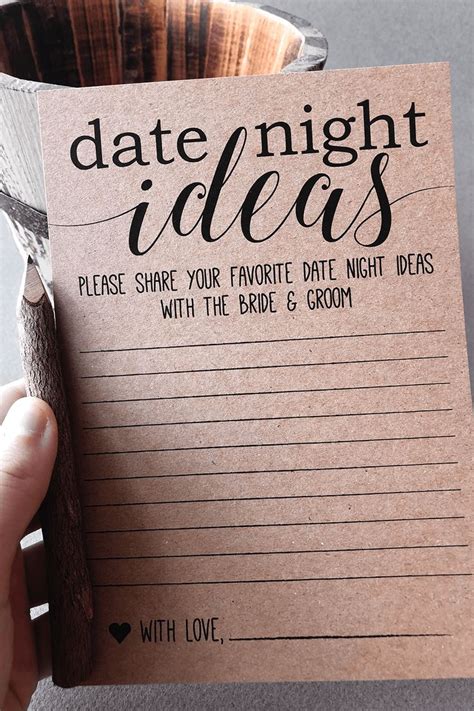 date night
ideas
PLEASE SHARE YOUR FAVORITE DATE NIGHT IDEAS
WITH THE BRIDE & GROOM
WITH LOVE,